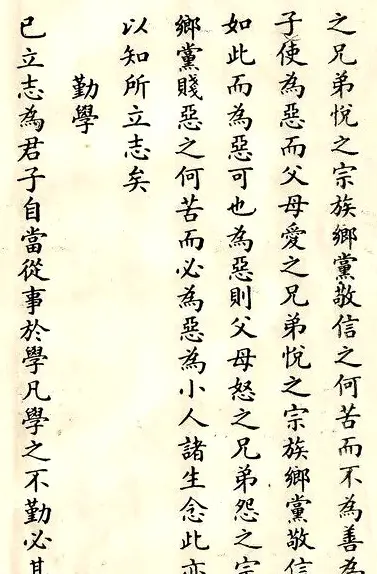 之兄弟悅之宗族鄉黨敬信之何苦而不為善為
子使為惡而父母愛之兄弟悅之宗族鄉黨敬信
如此而為惡可也為惡則父母怒之兄弟怨之宗
鄉黨賤惡之何苦而必為惡為小人諸生念此亦
以知所立志矣
勤學
已立志為君子自當從事於學凡學之不勤必其